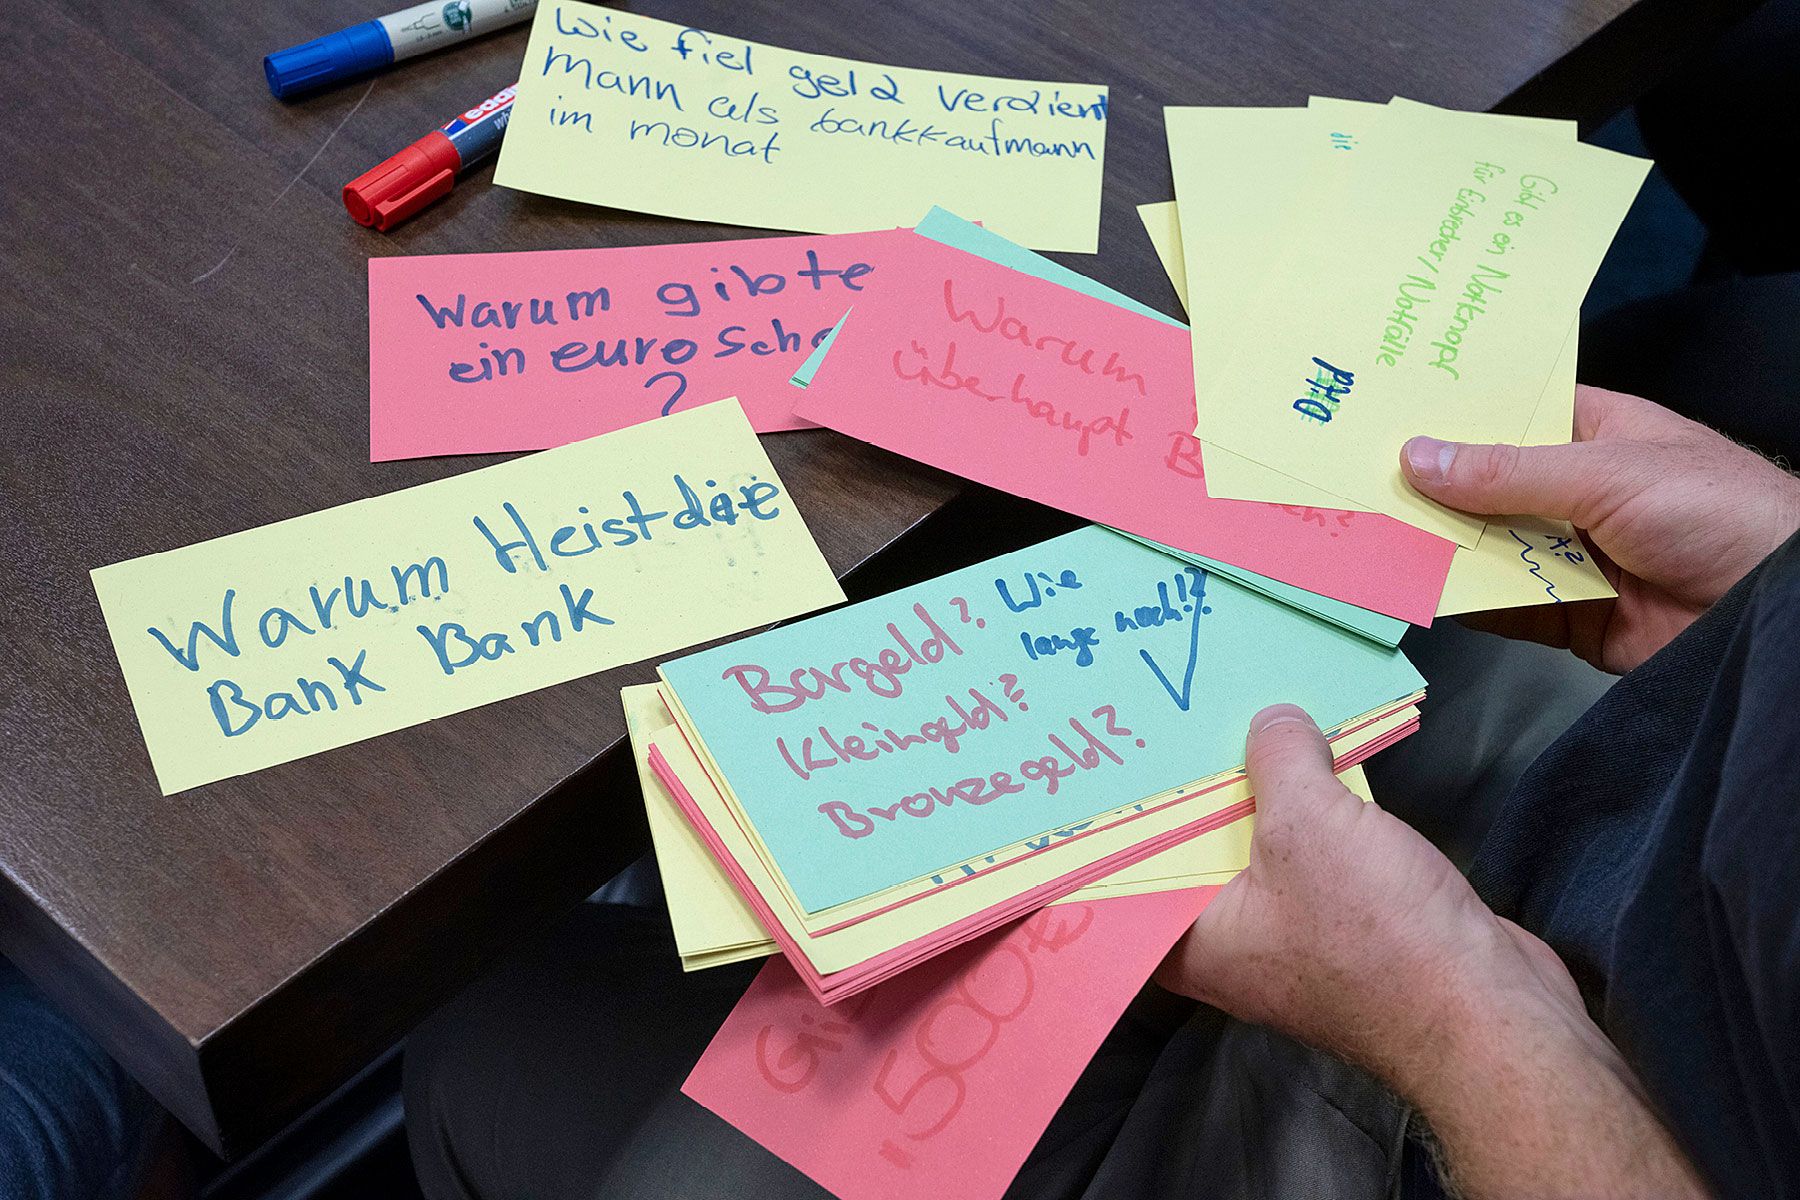 Wie fiel geld verdient
mann als bankkaufmann
im monat
eddin
Warum gibte
ein euro Sche
?
Warum
überhaupt B
ch?
Gibt es ein Notknopf
für Einbrecher/Notfälle
die
Warum Heist die
Bank Bank
Bargeld? Wie
Kleingeld? lange noch!?
Bronzegeld?
Gi
"500€